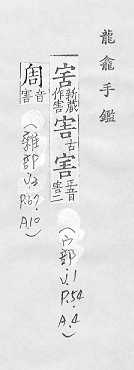 龍龕手鑑
𡧱新藏作害害古害正音害二
(宀部.V.1
P.54.
A.4.)
𠹛音害
(雜部
V.2
P.67
A.10)